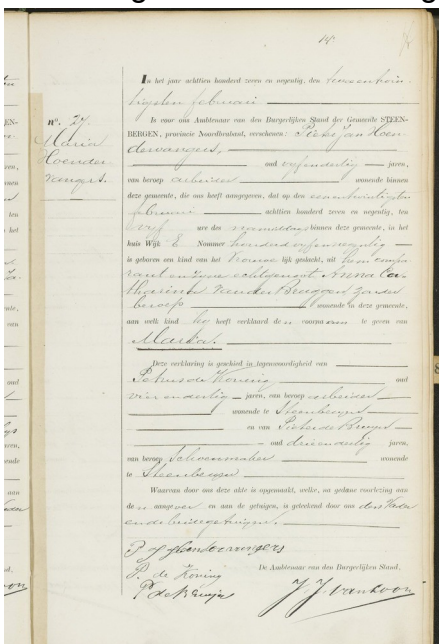 14
In het jaar achttien honderd zeven en negentig, den tweeentwin-
tigsten februari
Is voor ons Ambtenaar van den Burgerlijken Stand der Gemeente STEEN-
BERGEN, provincie Noordbrabant, verschenen: Pieter Jan Hoen
dervangers,
oud vijfendertig jaren,
van beroep arbeider wonende binnen
deze gemeente, die ons heeft aangegeven, dat op den eenentwintigsten
februari achttien honderd zeven en negentig, ten
vijf ure des voormiddags binnen deze gemeente, in het
huis Wijk E Nommer honderd
is geboren een kind van het Vrouwe lijk geslacht, uit hem compa
rant en zijne echtgenoot Anna Ca
tharina van der Bruggen zonder
beroep wonende in deze gemeente,
aan welk kind hij heeft verklaard den voornaam te geven van
Maria.
Deze verklaring is geschied in tegenwoordigheid van
Petrus de Koning oud
vierendertig jaren, van beroep arbeider
wonende te Steenbergen
en van Pieter de Bruijn
oud drieendertig jaren,
van beroep Schoenmaker wonende
te Steenbergen
Waarvan door ons deze akte is opgemaakt, welke, na gedane voorlezing aan
den aangever en aan de getuigen, is geteekend door ons den Vader
en de beide getuigen.
P J Hoendervangers
P. de Koning
De Ambtenaar van den Burgerlijken Stand,
P de Bruijn
J. J. van Loon
no. 27
Maria
Hoender
vangers.